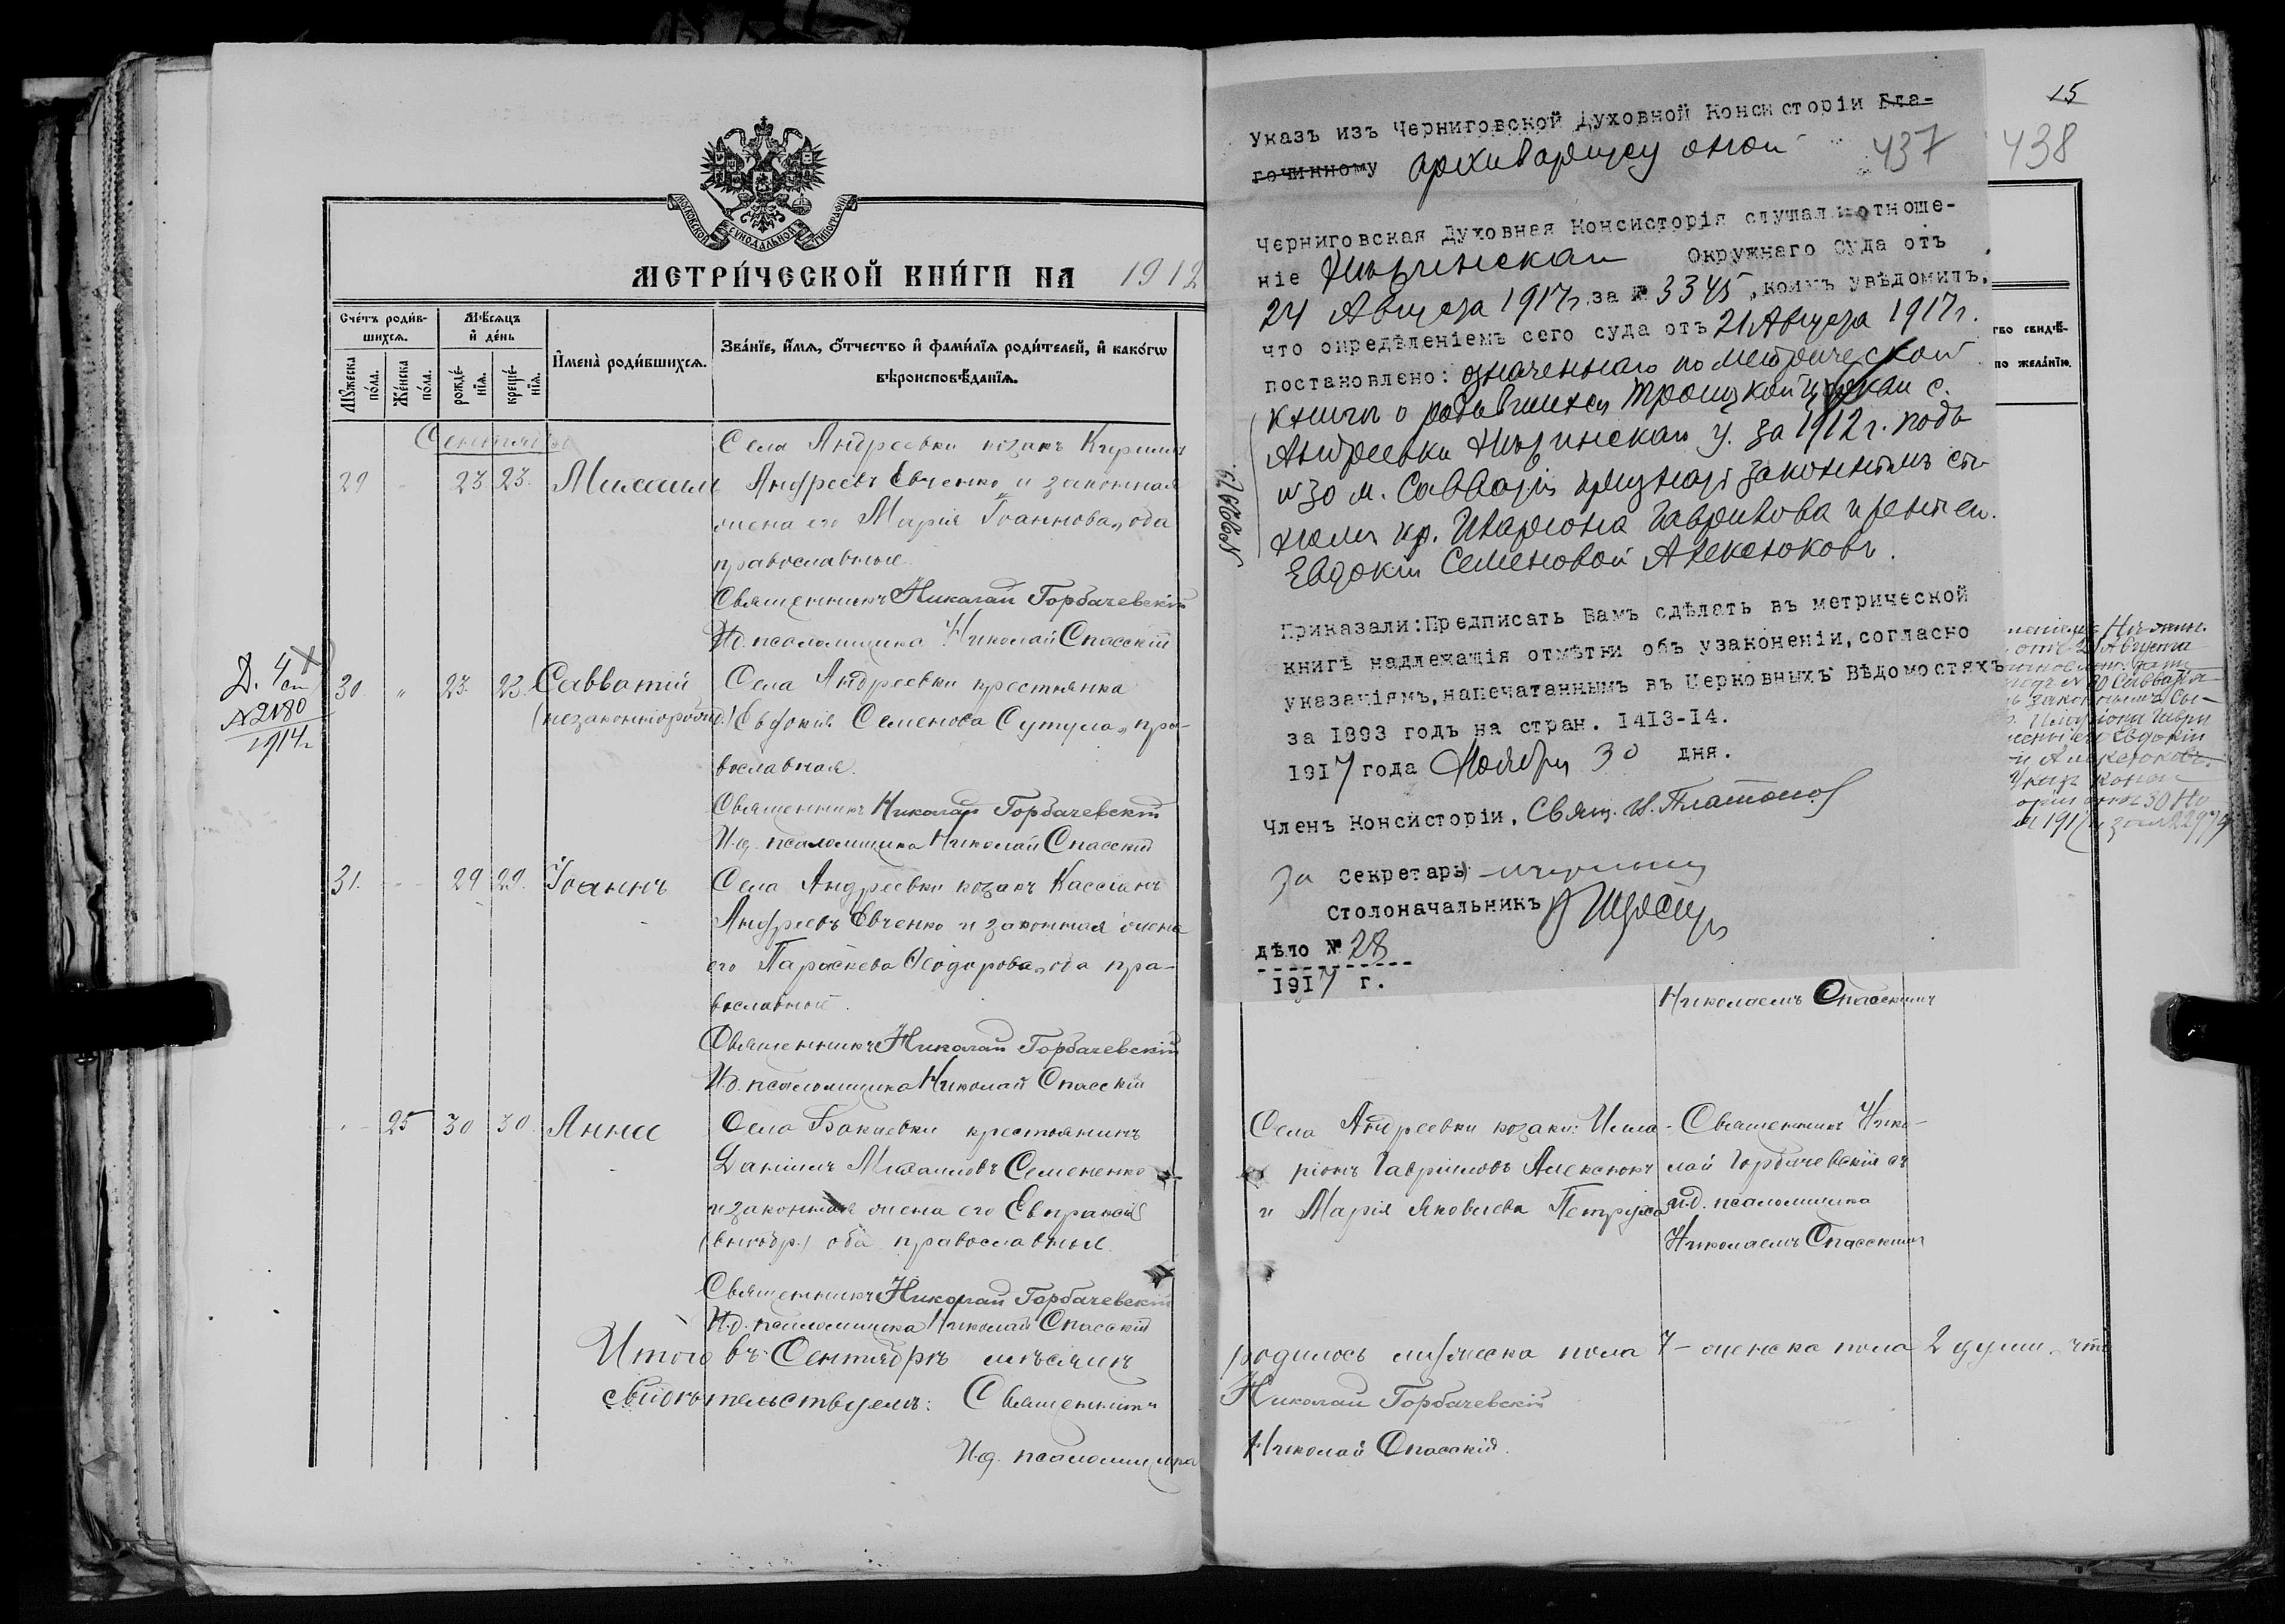 МОСКОВСКОЙ СУНОДАЛЬНОЙ ТИПОГРАФІИ
МЕТРИ́ЧЕСКОЙ КНИ́ГИ НА 1912
Сче́тъ роди́в-
шихся.
Мѣ́сяцъ
и҆ де́нь
И҆мена̀ роди́вшихся.
Зва́нїе, и҆́мя, о҆́тчество и҆ фами́лїя роди́телей, и҆ како́гѡ
вѣроисповѣ́данїя.
Мꙋ́жеска по́ла.
Же́нска по́ла.
рожде́-нїя.
креще́-нїя.
Сентябрь
29 " 23. 23. Михаилъ
Села Андреевки козакъ Кириллъ
Андреевъ Евченко и законная
жена его Марія Іоаннова, оба
православные.
Священникъ Николай Горбачевскій
И.д. псаломщика Николай Спасскій
Д. 4 ст
№ 2180
1914 г.
30. " 23. 23. Савватій
(незаконнорожд.)
Села Андреевки крестьянка
Евдокія Семенова Сутула, пра-
вославная.
Священникъ Николай Горбачевскій
И.д. псаломщика Николай Спасскій
31. " 29 29. Іоаннъ
Села Андреевки козакъ Кассіанъ
Андреевъ Евченко и законная жена
его Параскева Ѳеодорова, оба пра-
вославные.
Священникъ Николай Горбачевскій
И.д. псаломщика Николай Спасскій
" 25 30 30. Анна
Села Бакаевки крестьянинъ
Даніилъ Михаиловъ Семененко
и законная жена его Евпраксія
оба православные.
Священникъ Николай Горбачевскій
И.д. псаломщика Николай Спасскій
Итого въ Сентябрѣ мѣсяцѣ
свидѣтельствуемъ: Священникъ
И.д. псаломщика
15
438
437
Указъ изъ Черниговской Духовной Консисторіи Бла-
гочинному архиваріусу оной
Черниговская Духовная Консисторія слушали отноше-
ніе Нѣжинскаго Окружнаго Суда отъ
24 Августа 1917 г. за № 3345, коимъ увѣдомилъ,
что опредѣленіемъ сего суда отъ 21 Августа 1917 г.
постановлено: означеннаго по метрической
книгѣ о родившихся Троицкой церкви с.
Андреевки Нѣжинскаго у. за 1912 г. подъ
№ 30 м. Савватія признать законнымъ сы-
номъ кр. Иларіона Гаврилова и жены его
Евдокіи Семеновой Алексюковъ.
Приказали: Предписать Вамъ сдѣлать въ метрической
книгѣ надлежащія отмѣтки объ узаконеніи, согласно
указаніямъ, напечатаннымъ въ Церковныхъ Вѣдомостяхъ
за 1893 годъ на стран. 1413-14.
1917 года Ноября 30 дня.
Членъ Консисторіи, Свящ. И. Платонов
За Секретаря
Столоначальникъ
дѣло № 28
1917 г.
тво свидѣ-
по жела́нїю.
отъ 21 Августа
№ 30 Савватія
законнымъ сы-
Иларіона Гаври
жены его Евдокіи
Алексюковъ.
Указъ Конси
оріи отъ 30 Но
1917 г за № 22979
Николаемъ Спасскимъ
Села Андреевки козаки: Ила-
ріонъ Гавріиловъ Алексюкъ
и Марія Яковлева Петруха
Священникъ Нико-
лай Горбачевскій съ
и.д. псаломщика
Николаемъ Спасскимъ
родилось мужеска пола 7 – женска пола 2 души. что
Николай Горбачевскій
Николай Спасскій.